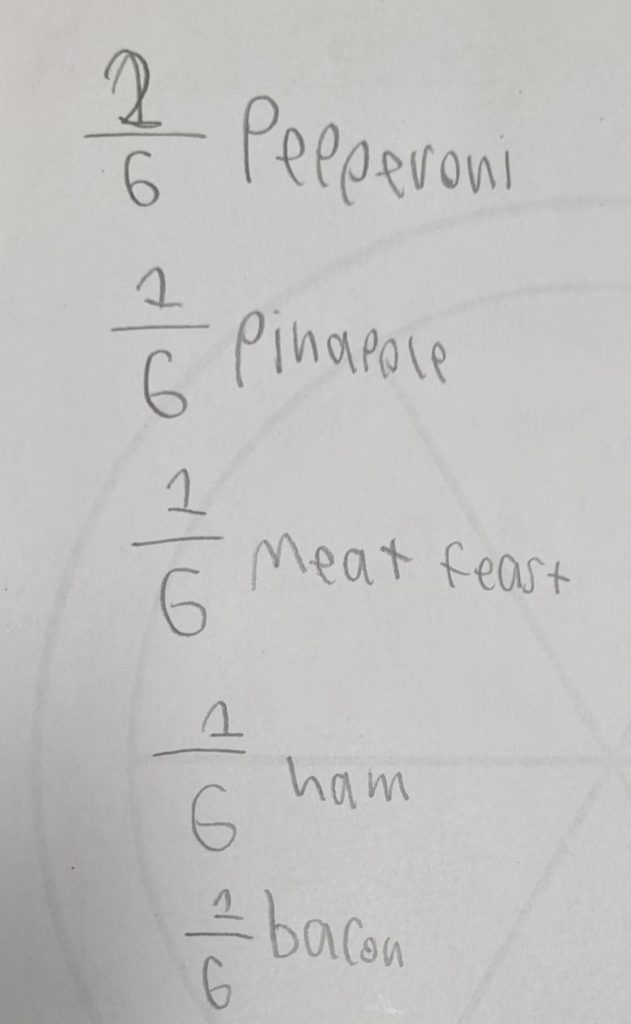 2/6 Pepperoni
1/6 Pinapple
1/6 Meat feast
1/6 ham
1/6 bacon